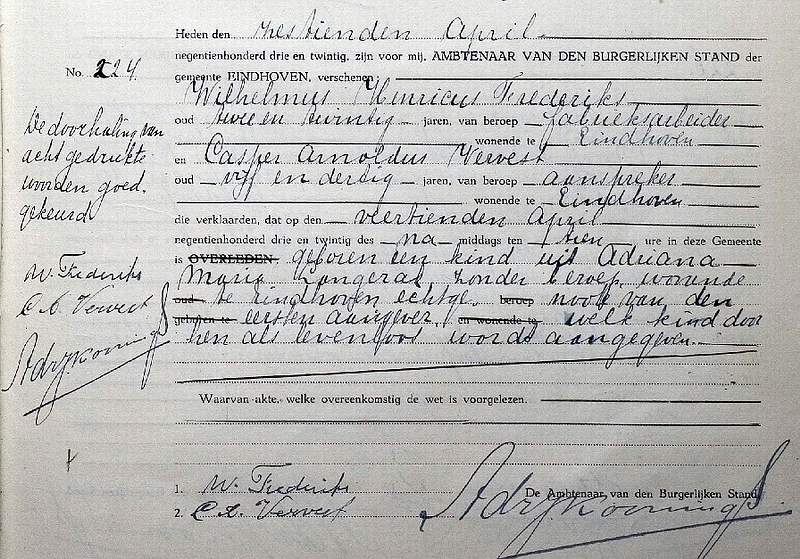 Heden den zestienden April
negentienhonderd drie en twintig, zijn voor mij, AMBTENAAR VAN DEN BURGERLIJKEN STAND der
No. 224.
gemeente EINDHOVEN, verschenen:
Wilhelmus Henricus Frederiks
oud twee en twintig jaren, van beroep fabrieksarbeider
wonende te Eindhoven
en Casper Arnoldus Vervest
oud vijf en dertig jaren, van beroep aanspreker
wonende te Eindhoven
die verklaarden, dat op den veertienden April
negentienhonderd drie en twintig des na middags ten tien ure in deze Gemeente
is OVERLEDEN geboren een kind uit Adriana
Maria zonder beroep, wonende
oud te Eindhoven echtge beroep noot van den
geboren te eersten aangever, en wonende te welk kind door
hen als levenloos wordt aangegeven.
De doorhaling van
acht gedrukte
woorden goed-
gekeurd
W. Frederiks
C A. Vervest
Waarvan akte, welke overeenkomstig de wet is voorgelezen.
1. W. Frederiks
De Ambtenaar van den Burgerlijken Stand,
2. C A. Vervest